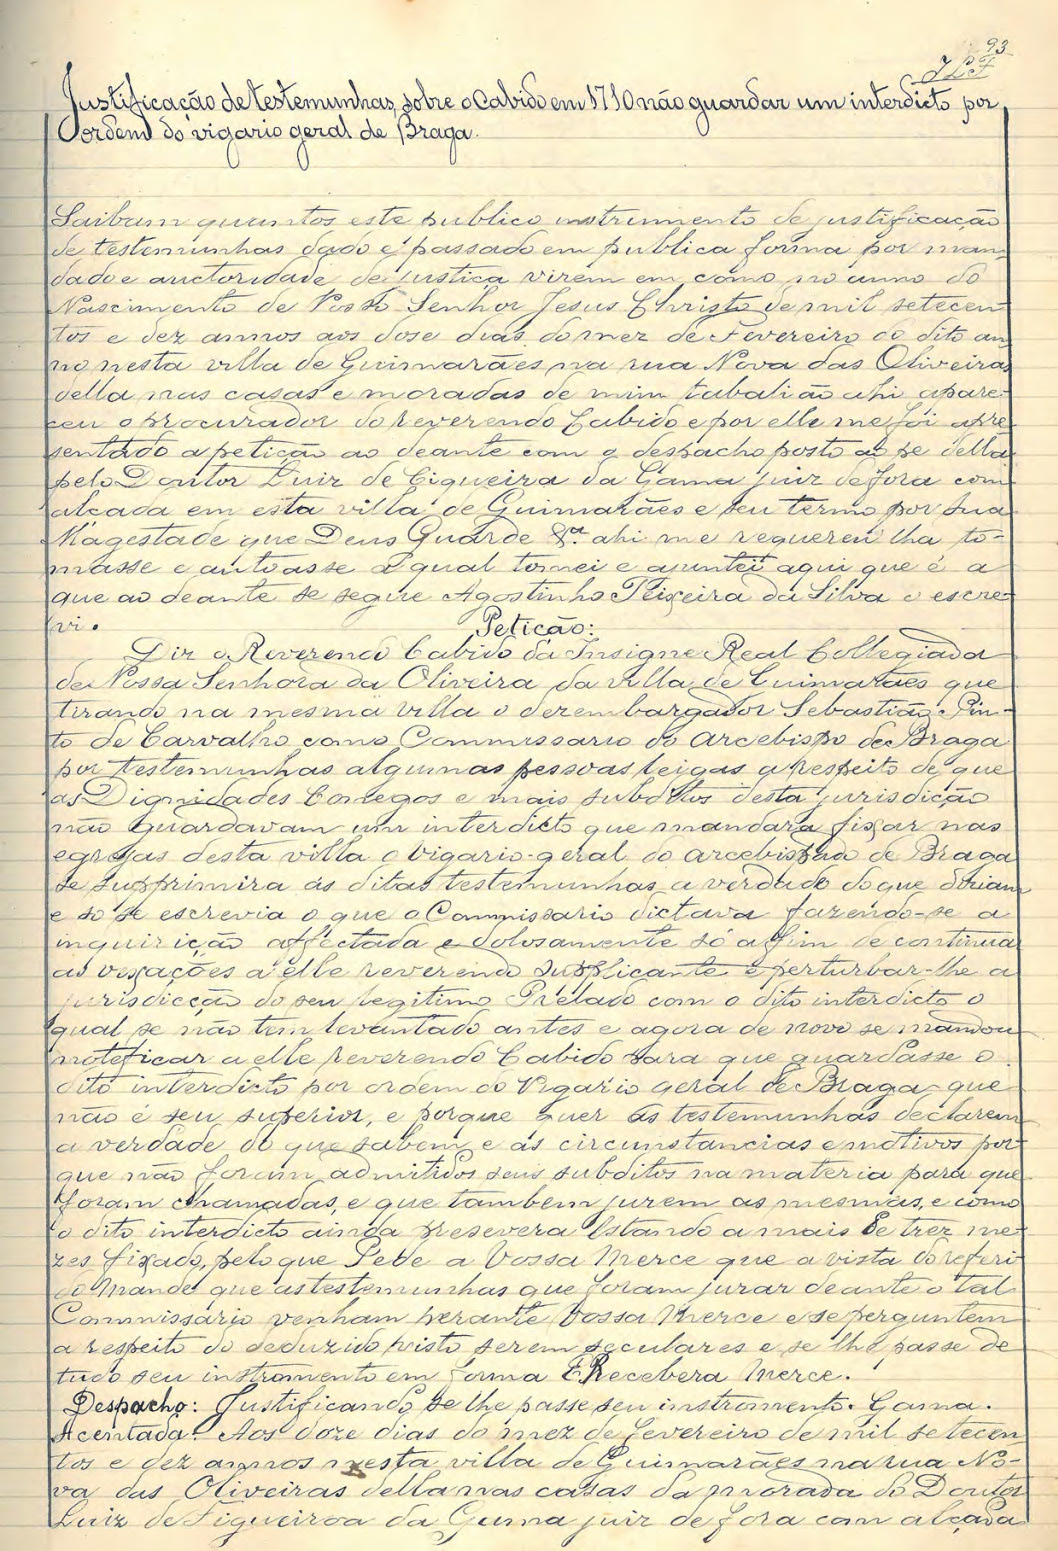 93
Justificação de testemunhas, sobre o Cabido em 1710 não guardar um interdicto por
ordem do vigario geral de Braga.
Saibam quantos este publico instrumento de justificação
de testemunhas dado e passado em publica forma por man-
dado e auctoridade de justiça virem em como no anno do
Nascimento de Nosso Senhor Jesus Christo de mil setecen
tos e dez annos aos dose dias do mez de Fevereiro do dito an
no nesta villa de Guimarães na rua Nova das Oliveiras
della nas casas e moradas de mim tabalião ahi apare-
ceu o procurador do reverendo Cabido e por elle me foi apre
sentado a petição ao deante com o despacho posto ao pe della
pelo Doutor Luiz de Cigueira da Gama juiz de fora com
alçada em esta villa de Guimarães e seu termo por Sua
Magestade que Deus Guarde &ª ahi me requereu lha to-
masse e autoasse a qual tomei e ajuntei aqui que é a
que ao deante se segue Agostinho Teixeira da Silva o escre-
vi.
Petição:
Diz o Reverendo Cabido da Insigne Real Collegiada
de Nossa Senhora da Oliveira da villa de Guimarães que
tirando na mesma villa o dezembargador Sebastião Pin-
to de Carvalho como Commissario do Arcebispo de Braga
por testemunhas algumas pessoas leigas a respeito de que
as Dignidades Conegos e mais subditos desta jurisdição
não guardavam um interdicto que mandara fixar nas
egrejas desta villa o vigario-geral do arcebispado de Braga
se supprimira ás ditas testemunhas a verdade do que diziam
e só se escrevia o que o Commissario dictava fazendo-se a
inquirição affectada e dolosamente só a fim de continua
as vexações a elle reverendo supplicante e perturbar-lhe a
jurisdicção do seu legitimo Prelado com o dito interdicto o
qual se não tem levantado antes e agora de novo se mandou
noteficar a elle reverendo Cabido para que guardasse o
dito interdicto por ordem do Vigario geral de Braga que
não é seu superior, e porque quer as testemunhas declarem
a verdade do que sabem e as circumstancias e motivos por-
que não foram admitidos seus subditos na materia para que
foram chamadas, e que tambem jurem as mesmas, e como
o dito interdicto ainda presevera estando a mais de trez me-
zes fixado, pelo que Pede a Vossa Merce que a vista do referi
do Mande que as testemunhas que foram jurar deante o tal
Commissario venham perante Vossa Merce e se perguntem
a respeito do deduzido visto serem seculares e se lhe passe de
tudo seu instromento em forma E Recebera Merce.
Despacho: Justificando se lhe passe seu instromento. Gama.
Acentada: Aos doze dias do mez de fevereiro de mil setecen
tos e dez annos nesta villa de Guimarães na rua No-
va das Oliveiras della nas casas da morada do Doutor
Luiz de Figueiroa da Gama juiz de fora com alçada